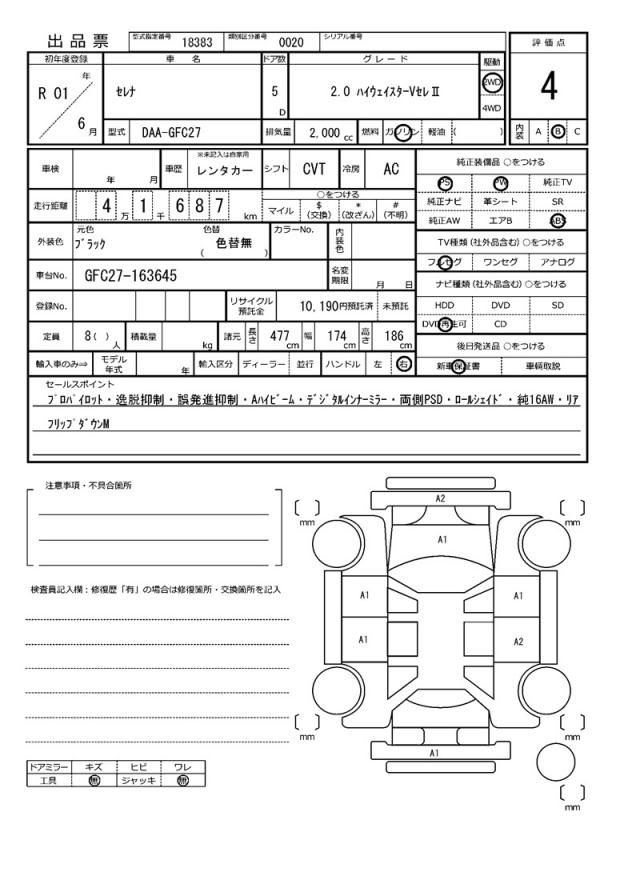 出品票 型式指定番号 18383 類別区分番号 0020 シリアル番号
初年度登録 車 名 ドア数 グレード 駆動 評価点
R 01 年 6 月 セレナ 5 D 2.0 ハイウェイスターVセレⅡ 2WD 4WD 4
型式 DAA-GFC27 排気量 2,000 cc 燃料 ガソリン 軽油 ( ) 内装 A B C
車検 年 月 車歴 ※未記入は自家用 レンタカー シフト CVT 冷房 AC
走行距離 4 万 1 千 6 8 7 km ○をつける
マイル $ (交換) * (改ざん) # (不明)
外装色 元色 ブラック 色替 色替無 ( ) カラーNo. 内装色
車台No. GFC27-163645 名変期限 月 日
登録No. リサイクル預託金 10,190円預託済 未預託
定員 8( ) 人 積載量 kg 諸元 長さ 477 cm 幅 174 cm 高さ 186 cm
輸入車のみ⇒ モデル年式 年 輸入区分 ディーラー 並行 ハンドル 左 右
純正装備品 ○をつける
PS PW 純正TV
純正ナビ 革シート SR
純正AW エアB ABS
TV種類 (社外品含む) ○をつける
フルセグ ワンセグ アナログ
ナビ種類 (社外品含む) ○をつける
HDD DVD SD
DVD再生可 CD
後日発送品 ○をつける
新車保証書 車輌取説
セールスポイント
プロパイロット・逸脱抑制・誤発進抑制・Aハイビーム・デジタルインナーミラー・両側PSD・ロールシェイド・純16AW・リア
フリップダウンM
注意事項・不具合箇所
検査員記入欄：修復歴「有」の場合は修復箇所・交換箇所を記入
ドアミラー キズ ヒビ ワレ
工具 無 ジャッキ 無
A2
mm mm
A1
A1 A1
A1 A2
mm mm
A1
mm